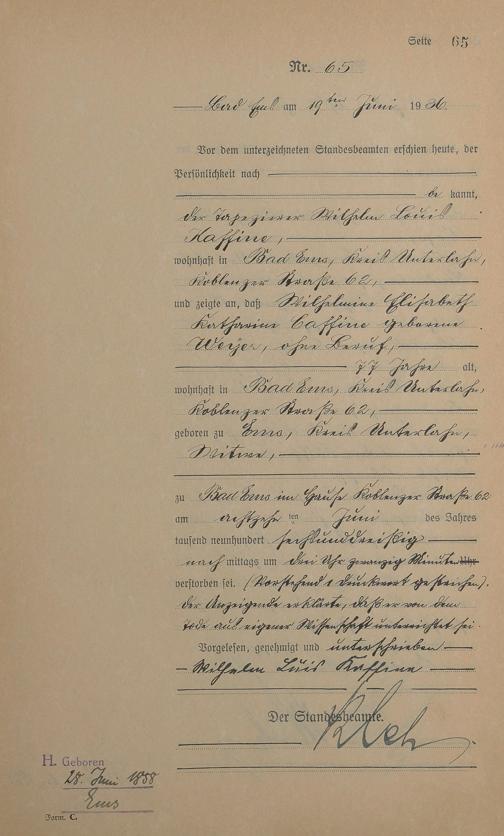 Seite 65
Nr. 65
Bad Ems am 19ten Juni 1936.
Vor dem unterzeichneten Standesbeamten erschien heute, der
Persönlichkeit nach
be kannt,
der Tapezierer Wilhelm Louis
Kaffine,
wohnhaft in Bad Ems, Kreis Unterlahn,
Koblenzer Straße 62,
und zeigte an, daß Wilhelmine Elisabeth
Katharine Caffine geborene
ohne Beruf,
77 Jahre alt,
wohnhaft in Bad Ems, Kreis Unterlahn,
Koblenzer Straße 62,
geboren zu Ems, Kreis Unterlahn,
Witwe,
zu Bad Ems im Hause Koblenzer Straße 62
am achtzehn ten Juni des Jahres
tausend neunhundert sechsunddreißig
nach mittags um drei Uhr zwanzig Minuten Uhr
verstorben sei. (Vorstehend 1 Druckwort gestrichen).
der Anzeigende erklärte, daß er von dem
Tode aus eigener Wissenschaft unterrichtet sei.
Vorgelesen, genehmigt und unterschrieben
Wilhelm Luis Kaffine
Der Standesbeamte.
H. Geboren
28. Juni 1858
Ems
Form. C.